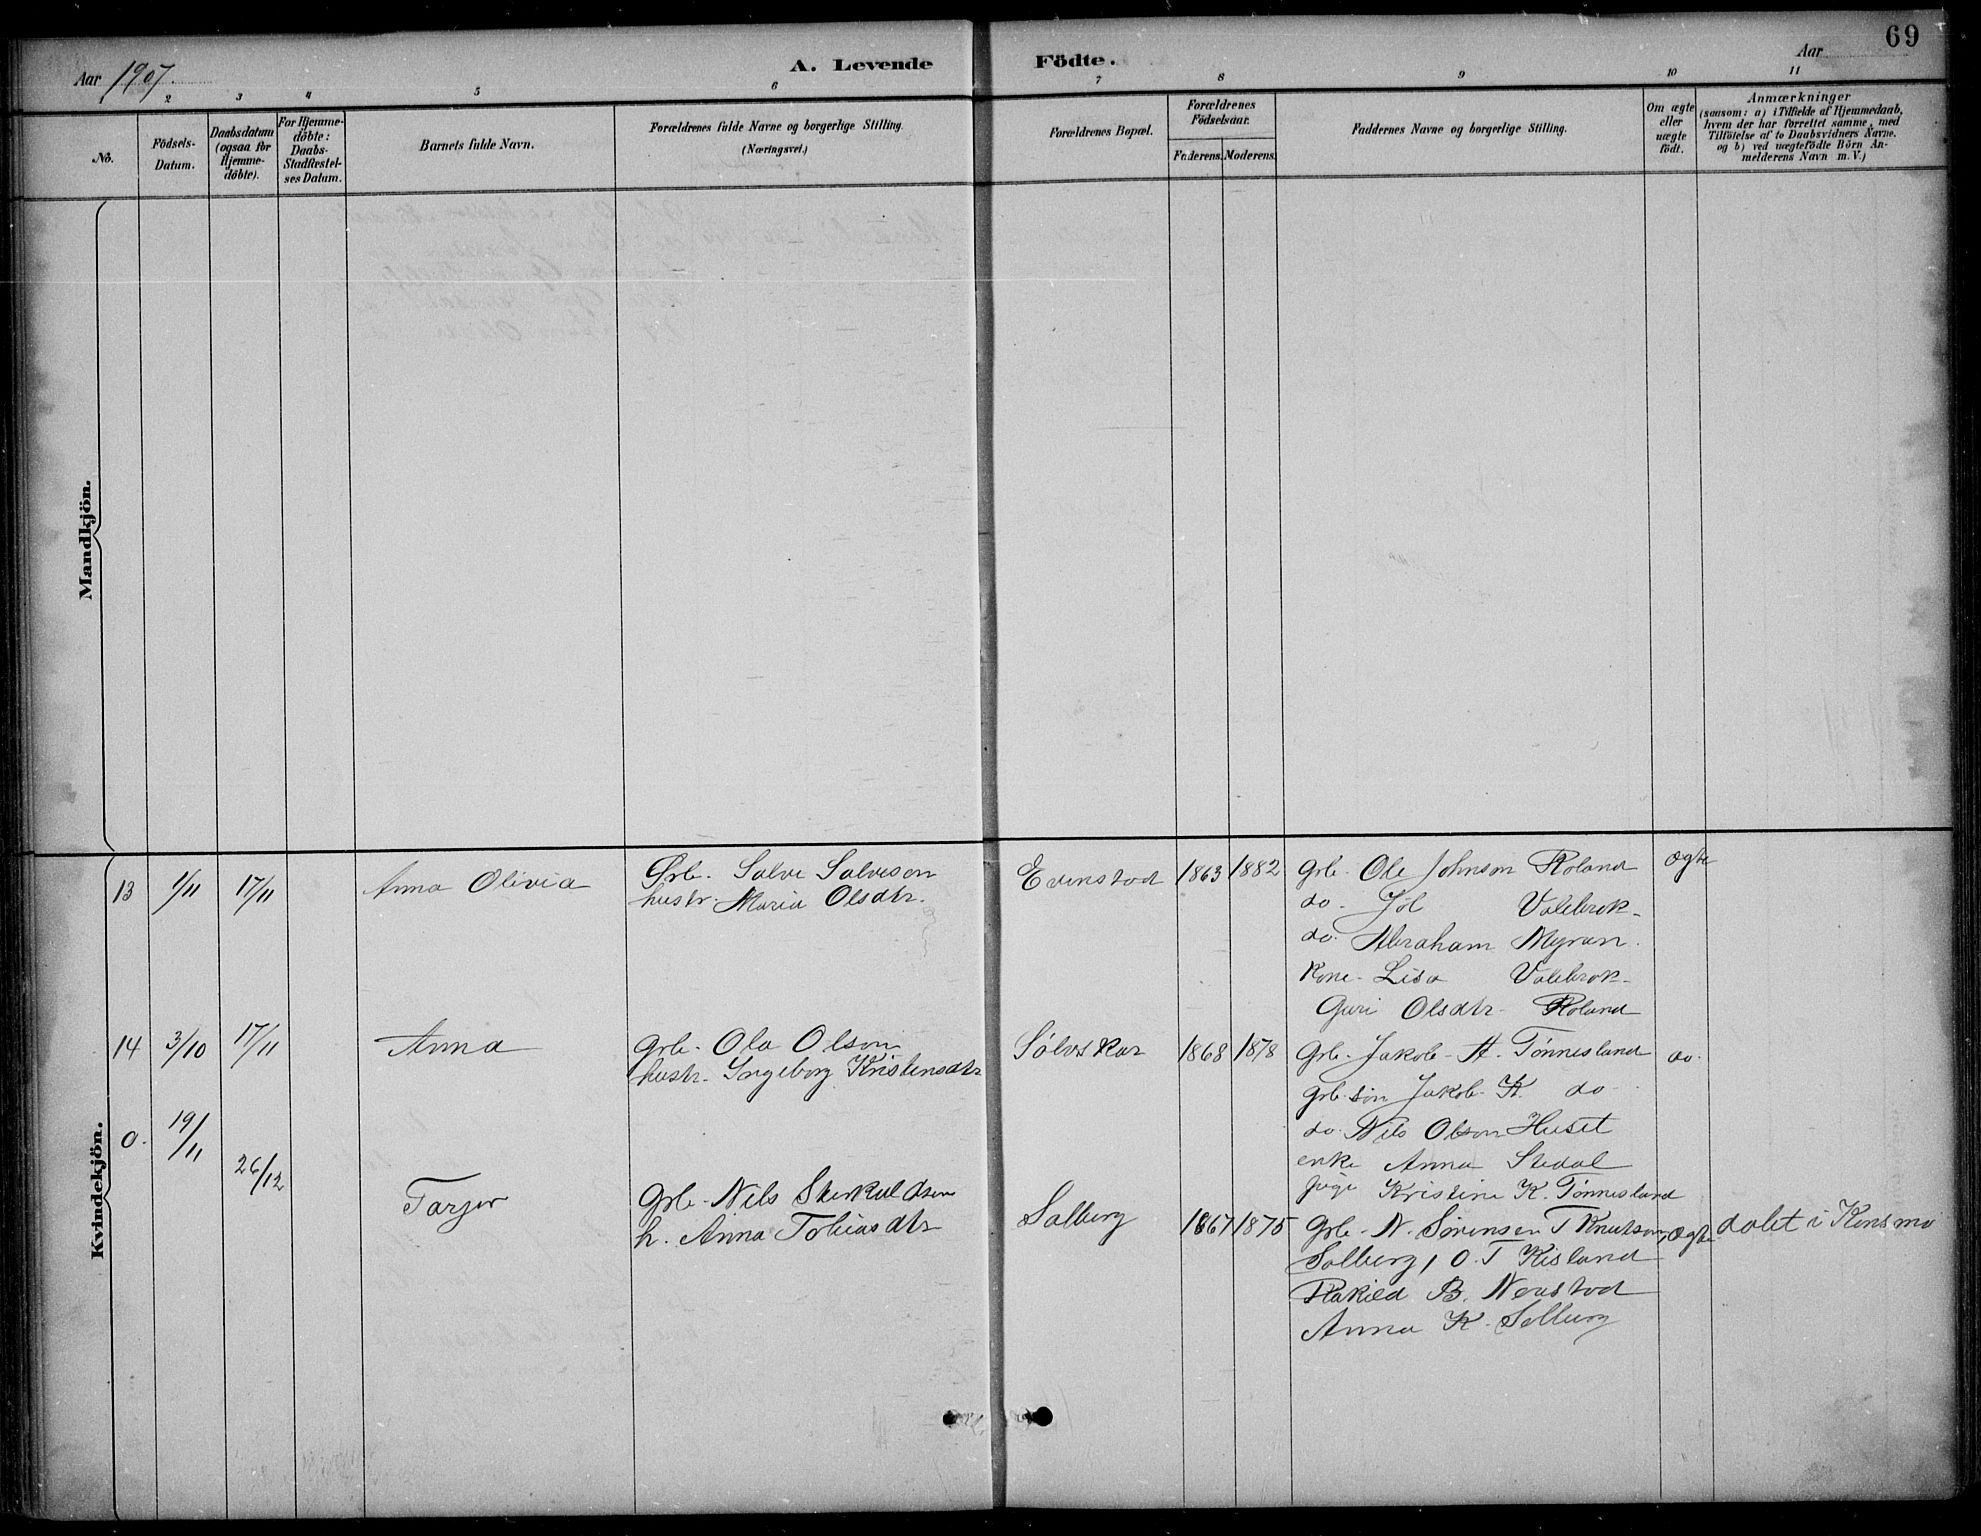 69
Aar 1907.
A. Levende Födte.
Aar
1 2 3 4 5 6 7 8 9 10 11
No.
Födsels-
Datum.
Daabsdatum
(ogsaa for
Hjemme-
döbte).
For Hjemme-
döbte:
Daabs-
Stadfæstel-
ses Datum.
Barnets fulde Navn.
Forældrenes fulde Navne og borgerlige Stilling.
(Næringsvei.)
Forældrenes Bopæl.
Forældrenes
Födselsaar.
Faderens. Moderens.
Faddernes Navne og borgerlige Stilling.
Om ægte
eller
uægte
födt.
Anmærkninger
(saasom: a) i Tilfælde af Hjemmedaab,
hvem der har forrettet samme, med
Tilföielse af to Daabsvidners Navne.
og b) ved uægtefödte Börn An-
melderens Navn m. V.)
Mandkjön.
Kvindekjön.
13 1/11 17/11 Anna Olivia
Grb. Salve Salveson
hustr. Maria Olsdtr.
Evenstad 1863 1882
Grb. Ole Johnson Roland
do. Jól Valebrok
do. Abraham Myran.
Kone. Lisa Valebrok
Guri Olsdtr. Roland
ægte
14 3/10 17/11 Anna
Grb. Ola Olson
hustr. Ingeborg Kristensdtr
Sólvskar 1868 1878
Grb. Jakob A. Tónnesland
grb. són Jakob K. do
do. Nils Olson Huset
enke Anna Stedal
pige Kristine K. Tónnesland
do.
0. 19/11 26/12 Tarjer
Grb. Nils Sterkuldsen
h. Anna Tobiasdtr
Solberg 1867 1875
Grb. N. Sórensen T Knutson,
Solberg, O. T Kisland
Rakild B. Nevstad
Anna K. Solberg
Ægte
dobt i Konsmo